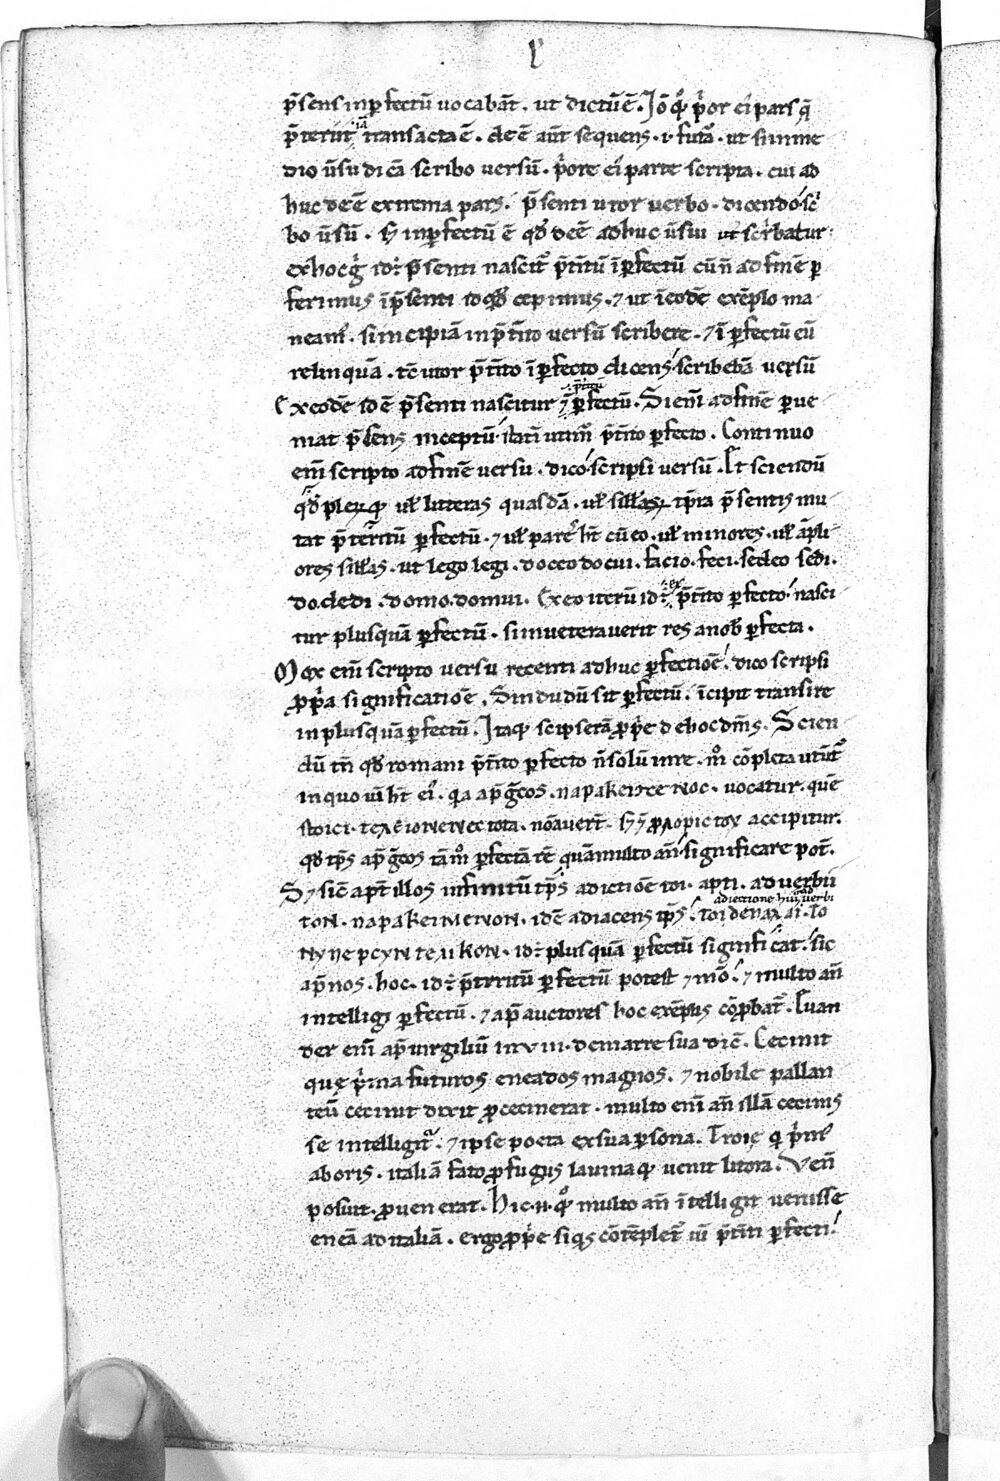 p̄sens inp̱fectū uocabāt. ut dictū ē. Iō qđ p̍or ei᷒ pars q̄
p̄teriit iā transacta ē. deē aūt sequens. ɫ futᷓa. ut si in me
dio ūsu dicā scribo versū. p̍ore ei᷒ parte scripta. cui ad
huc deē extrema pars. p̄senti utor verbo. dicendo sc̍
bo ūsū. ꝫ inp̱fectū ē qđ deē adhuc ūsui ut̄ sc̍batur.
ex hoc g̍ idē p̄senti nascit᷒ p̄t̄itū īp̱fectū cū n̄ ad finē p̱
ferimus ī p̄senti id qđ cepimus. ⁊ ut ī eodē exēplo ma
neam᷒. si incipiā in p̄t̄ito versū scribere. ⁊ īp̱fectū eū
relinquā. tc̄ utor p̄t̄ito īp̱fecto dicens scribebā versū
Ex eodē idē p̄senti nascitur ⁊ p̄t̄itū p̱fectū. Si eni᷒ ad finē p̱ue
niat p̄sens inceptū statī utim᷒ p̄t̄ito p̱fecto. Continuo
eni᷒ scripto ad finē versu. dico scripsi versū. Et sciendū
qđ pleꝝq꜏ uł litteras quasdā. uł sillabaꝝ tp̄ra p̄sentis mu
tat p̄teritū p̱fectū. ⁊ uł pares ht̄ cū eo. uł minores. uł āpli
ores sillas. ut lego legi. doceo docui. facio. feci. sedeo sedi.
do. dedi. domo. domui. Ex eo iterū idē ex p̄t̄ito p̱fecto nasci
tur plusquā p̱fectū. si inueterauerit res a nob̄ p̱fecta.
Mox eni᷒ scripto versu recenti adhuc p̱fectiōe. dico scripsi
ꝓp̍a significatiōe. Sin dudū sit p̱fectū. īcipit transire
in plusquā p̱fectū. Itaq꜏ scipserā ꝓp̍e de hoc dm̄s. Scien
dū tn̄ qđ romani p̄t̄ito p̱fecto n̄ solū in re. mᵒ cōpleta utūt᷒
in quo uī ht̄ ei᷒. q̍a ap̄ gr̄cos. παρακειμενος. vocatur. quē
stoici. τελειον ενεστωτα. nōauert̄. ꝫ ⁊ ꝓ αοριστου accipitur.
qđ tp̄s ap̄ gr̄cos tā mᵒ p̱fectā rē quā multo an̄ significare pot̄.
S; sic̄ ap̄t illos infinitū tp̄s adictiōe τοι. αρτι. aduerbii
adiectione hui᷒ aduerbi
ΤΟΝ. παρακειμενον. id ē adiacens tp̄s
intelligi p̱fectū. ⁊ ap̄ auctores hoc exēplis cōp̍bat᷒. Euan
der eni᷒ ap̄ virgiliū in viii. de matre sua dic̄. Cecinit
que p̍ma futuros eneados magnos. ⁊ nobile pallan
teū cecinit dixit ꝓ cecinerat. multo eni᷒ an̄ illā cecinis
se intelligit᷒. ⁊ ipse poeta ex sua p̱sona. Troię q̍ p̍m᷒
aboris. italiā fato ꝓfugus lauinaq꜏ uenit litora. Ven̄
posuit. ꝓ uenerat. hic .n. qᵒ multo an̄ ītelligit uenisse
eneā ad italiā. ergo ꝓp̍e si q̍s cōtēplet᷒ uī p̄t̄iti p̱fecti.